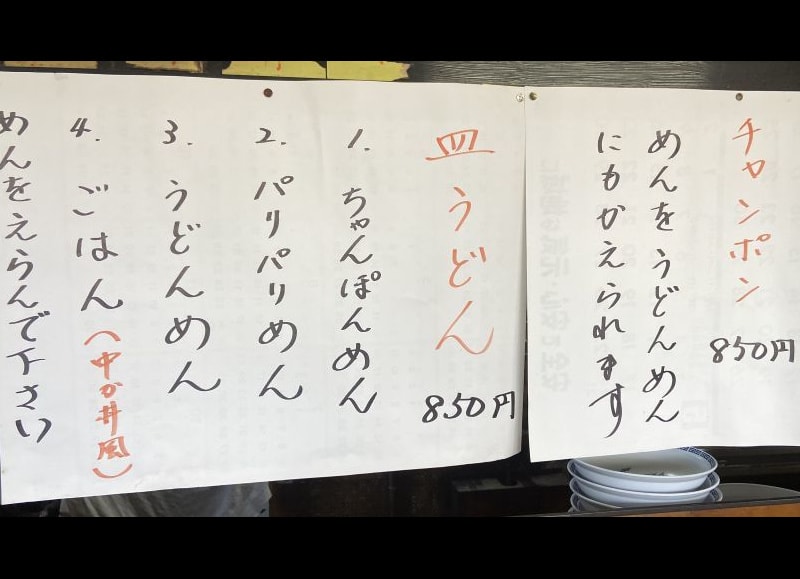 チャンポン
850円
めんをうどんめん
にもかえられます
皿うどん
850円
1. ちゃんぽんめん
2. パリパリめん
3. うどんめん
4. ごはん（中か丼風）
めんをえらんで下さい